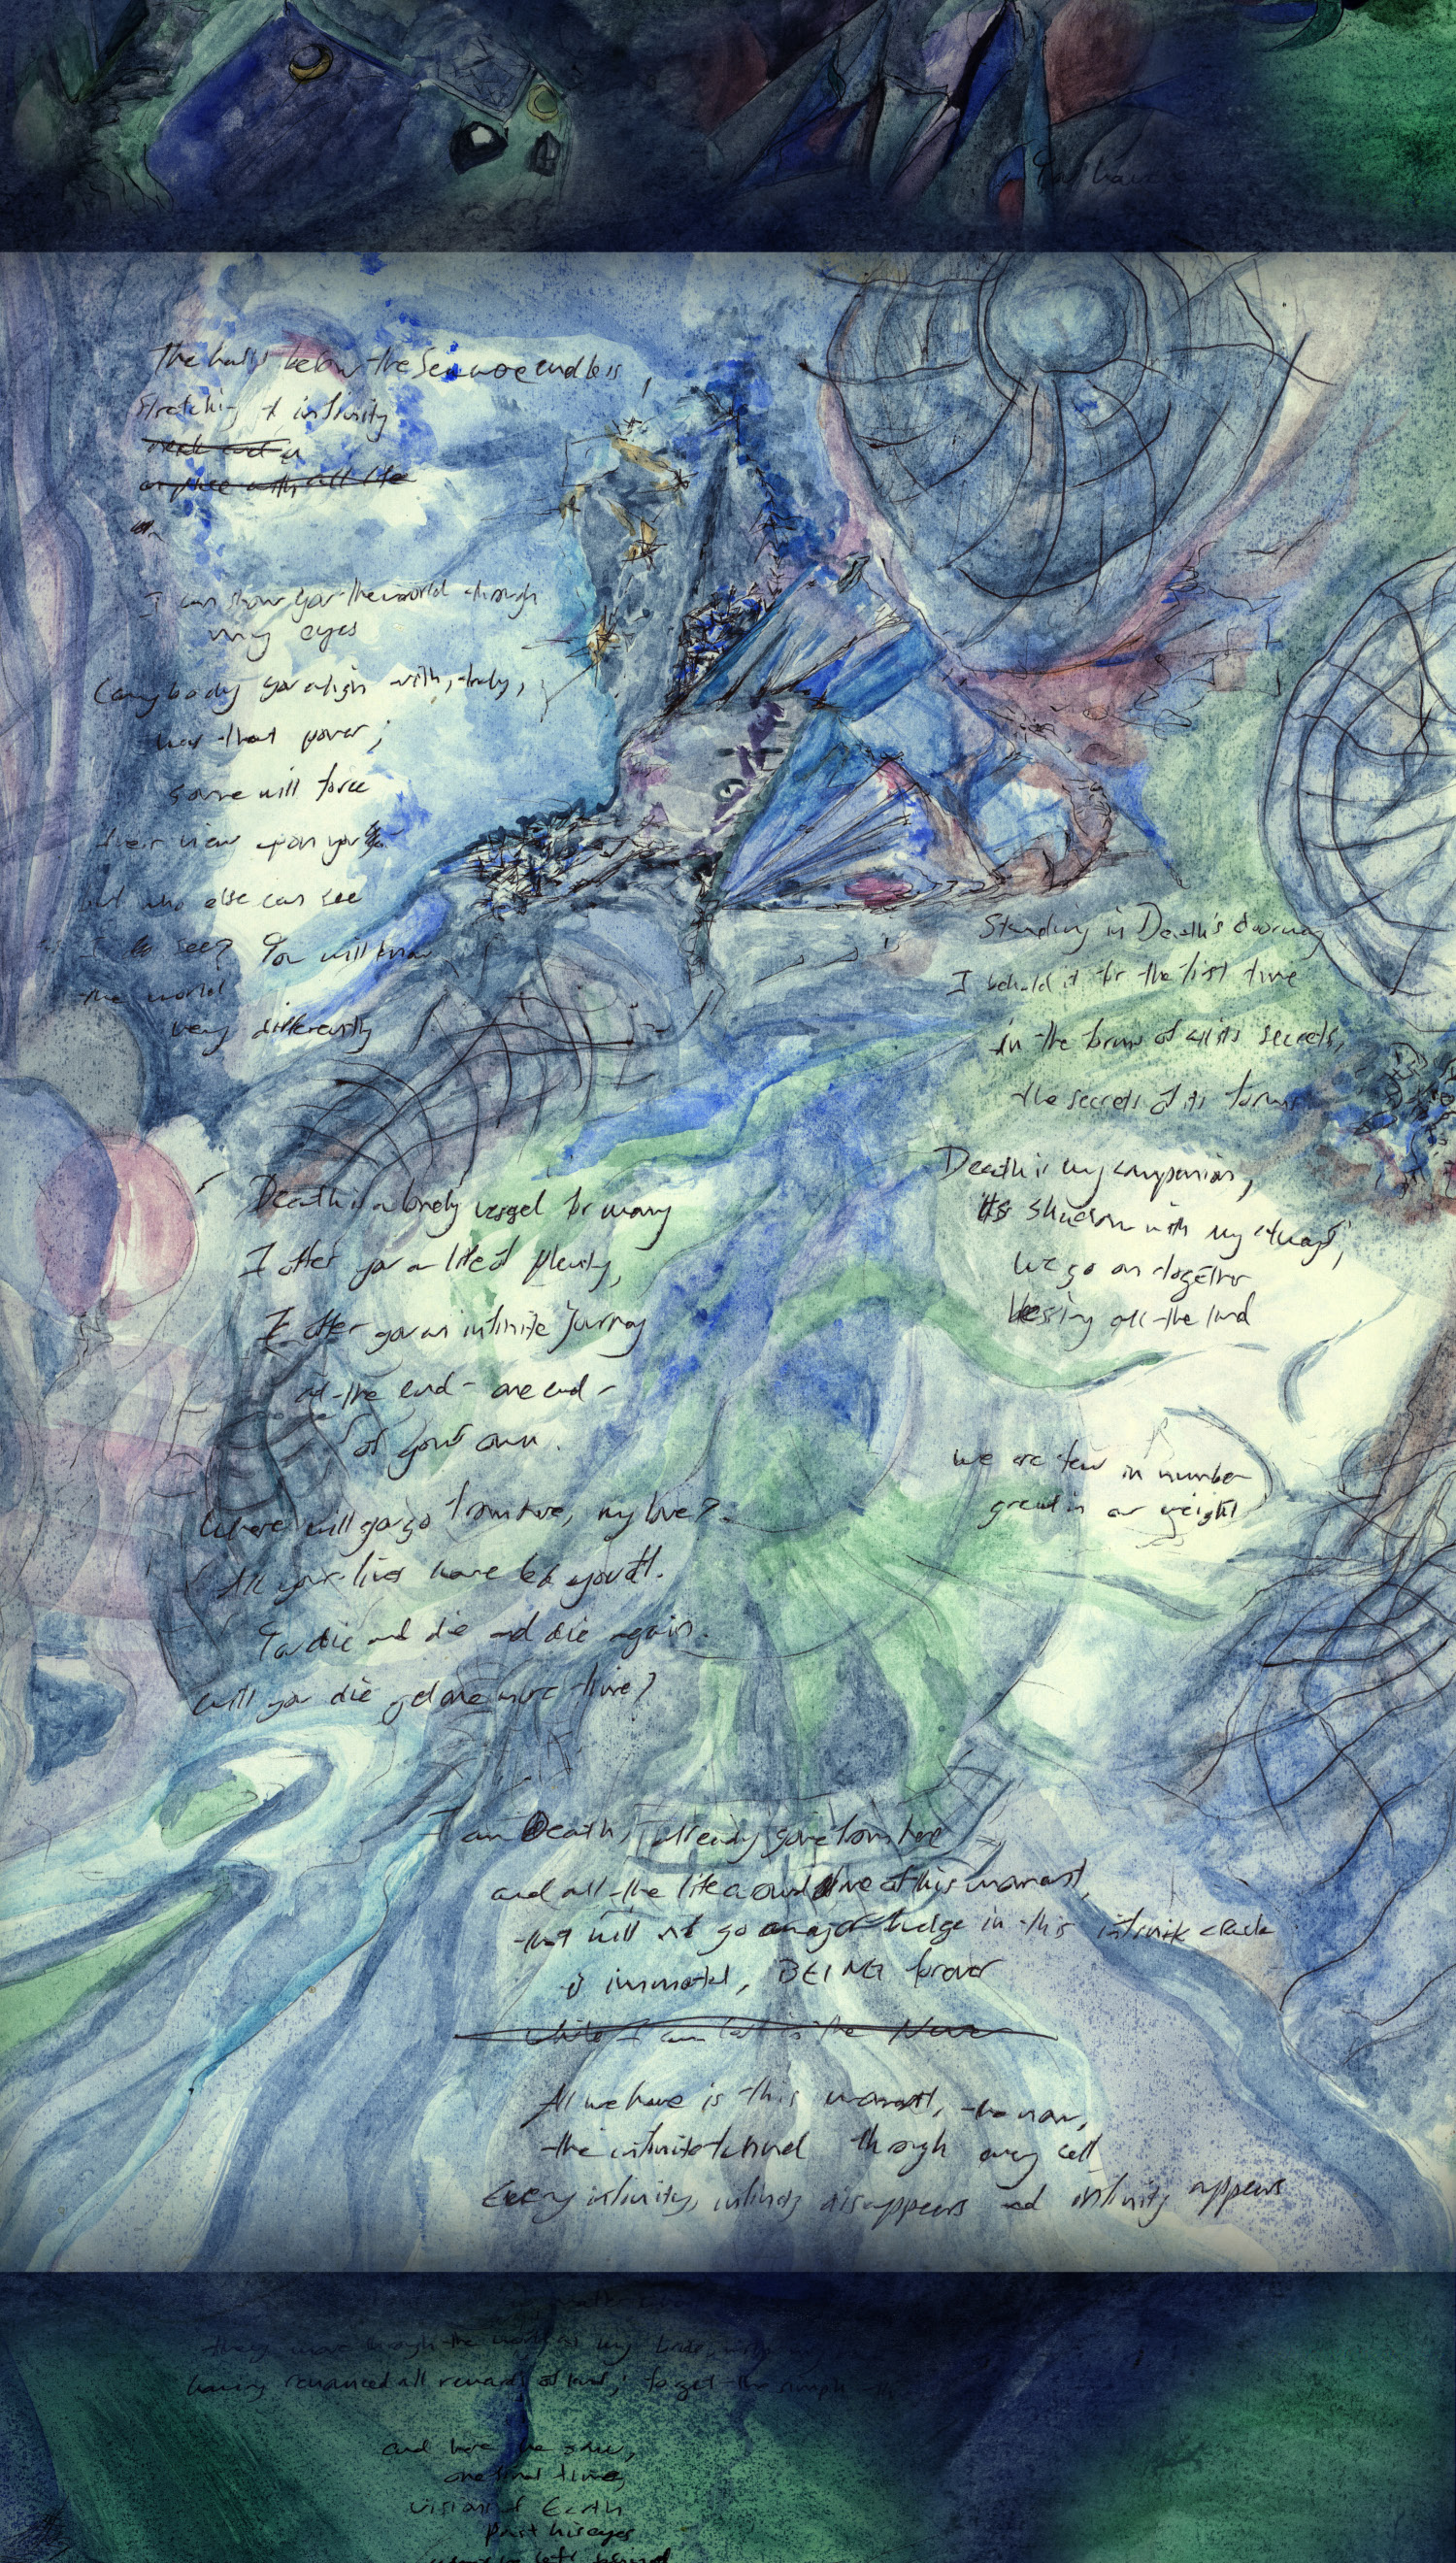 You have
The halls below the Sea are endless,
stretching to infinity
I can show you the world through
my eyes
(anybody you align with, truly,
has that power;
some will force
their view upon you
but who else can see
I do see? You will know
the world
very differently
Standing in Death's doorway
I behold it for the first time
in the forms of all its secrets,
the secrets of its forms
Death is my companion,
its shadow with my
we go on together
blessing all the land
Death is a lonely vessel for many
I offer you a life of plenty,
I offer you an infinite journey
at the end - one end -
of your own.
we are few in number
great in our weight
Where will you go from here, my love?
All your lives have led you
You die and die and die again.
Will you die yet one more time?
I am Death, already gone from here
and all the life around me at this moment,
that will not go away or budge in this infinite
is immortal, BEING forever
All we have is this moment, the now,
the infinite tunnel through every cell
Every infinity, infinity disappears and infinity appears
they move through the world as my
having renounced all rewards of land, forget the
and here he saw,
one final time,
visions of Earth
past his eyes
left behind